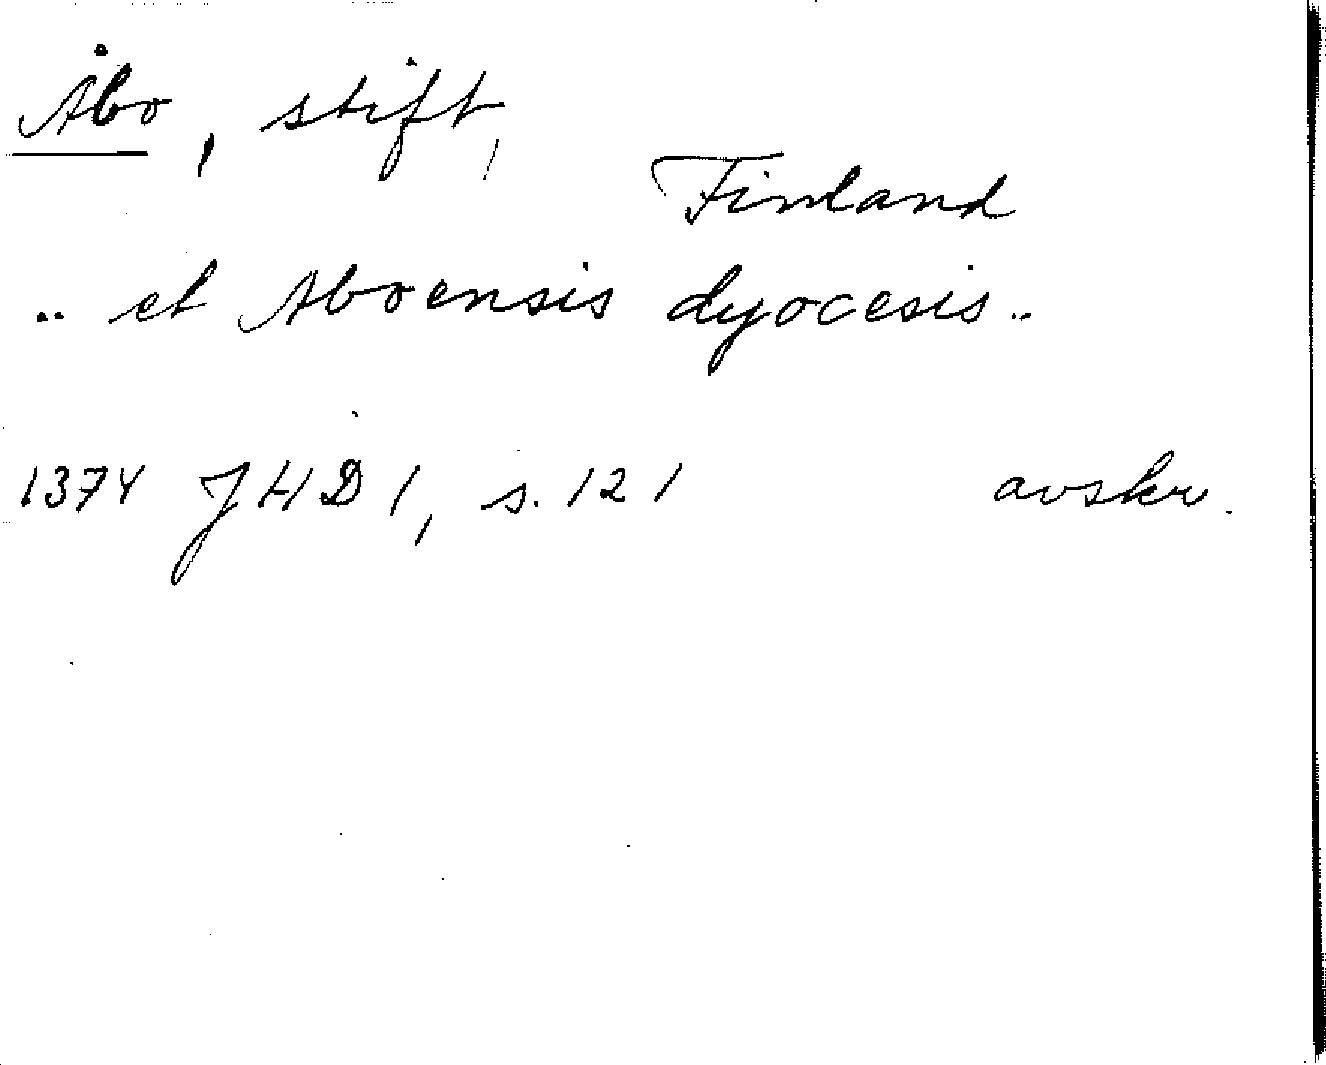 Åbo, stift,
Finland
.. et Aboensis dyocesis..
1374 JHD 1, s. 121 avskr.